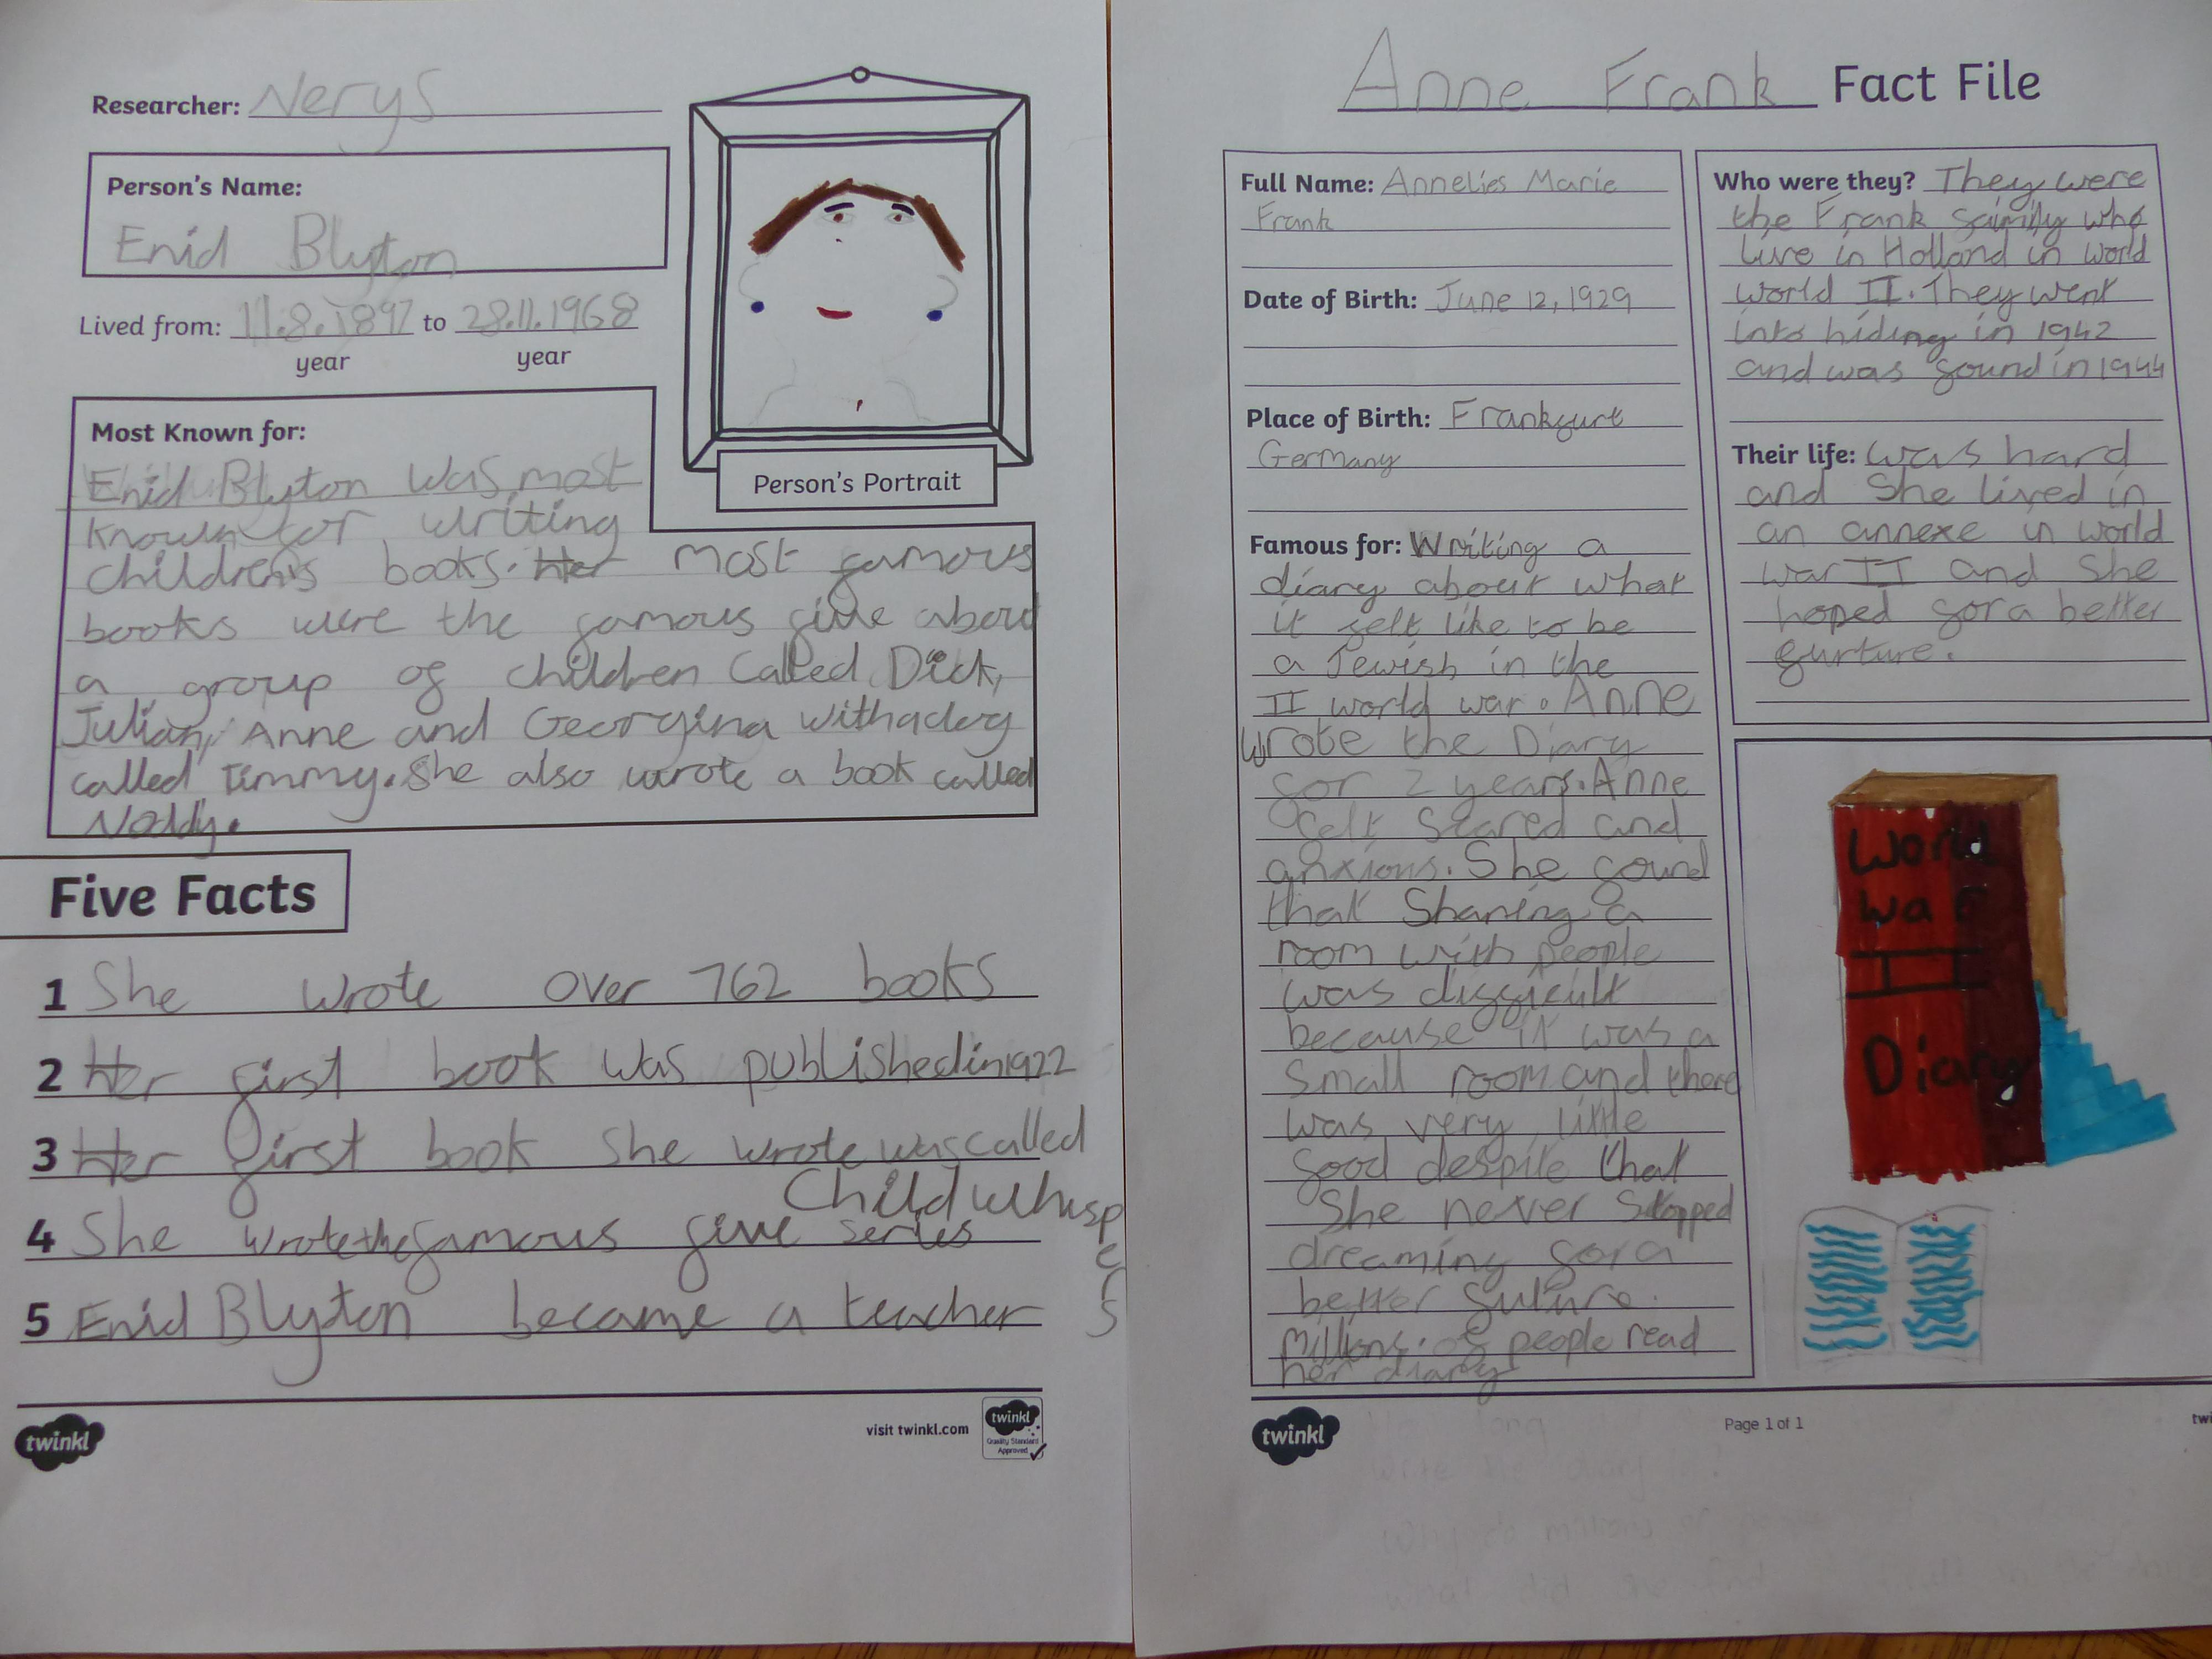 Researcher: Nerys
Person's Name:
Enid Blyton
Lived from: 11.8.1897 to 28.11.1968
year year
Most Known for:
Enid Blyton was most
known for writing
children's books. Her most famous
books were the famous five about
a group of children called Dick,
Julian, Anne and Georgina with a dog
called Timmy. She also wrote a book called
Noddy.
Person's Portrait
Five Facts
1 She wrote over 762 books
2 Her first book was published in 1922
3 Her first book she wrote was called
Child whispers
4 She wrote the famous five series
5 Enid Blyton became a teacher
twinkl
visit twinkl.com
twinkl
Quality Standard
Approved
Anne Frank Fact File
Full Name: Annelies Marie
Frank
Date of Birth: June 12, 1929
Place of Birth: Frankfurt
Germany
Famous for: Writing a
diary about what
it felt like to be
a Jewish in the
II world war. Anne
wrote the Diary
for 2 years. Anne
felt scared and
anxious. She found
that Sharing a
room with people
was difficult
because it was a
small room and there
was very little
food despite that
She never stopped
dreaming for a
better future.
millions of people read
her diary
Who were they? They were
the Frank family who
live in Holland in world
world II. They went
into hiding in 1942
and was found in 1944
Their life: was hard
and She lived in
an annexe in world
war II and She
hoped for a better
furture.
World
War
II
Diary
twinkl
Page 1 of 1
twi